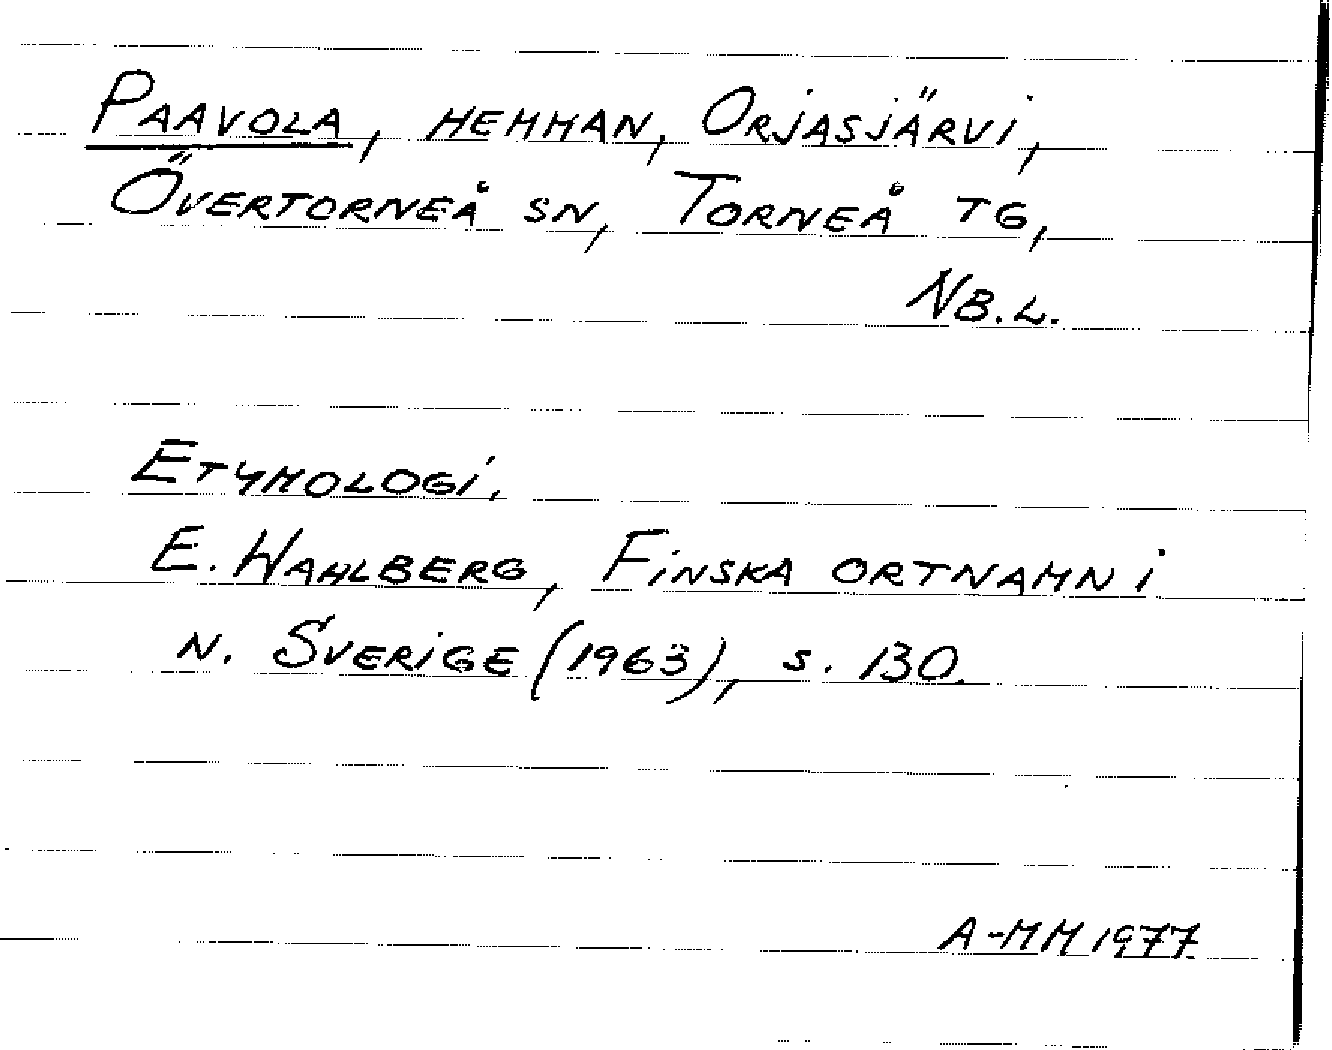 PAAVOLA, HEMMAN, ORJASJÄRVI,
ÖVERTORNEÅ SN, TORNEÅ TG,
NB.L.
ETYMOLOGI.
E. WAHLBERG, FINSKA ORTNAMN I
N. SVERIGE (1963), S. 130.
A-MM 1977